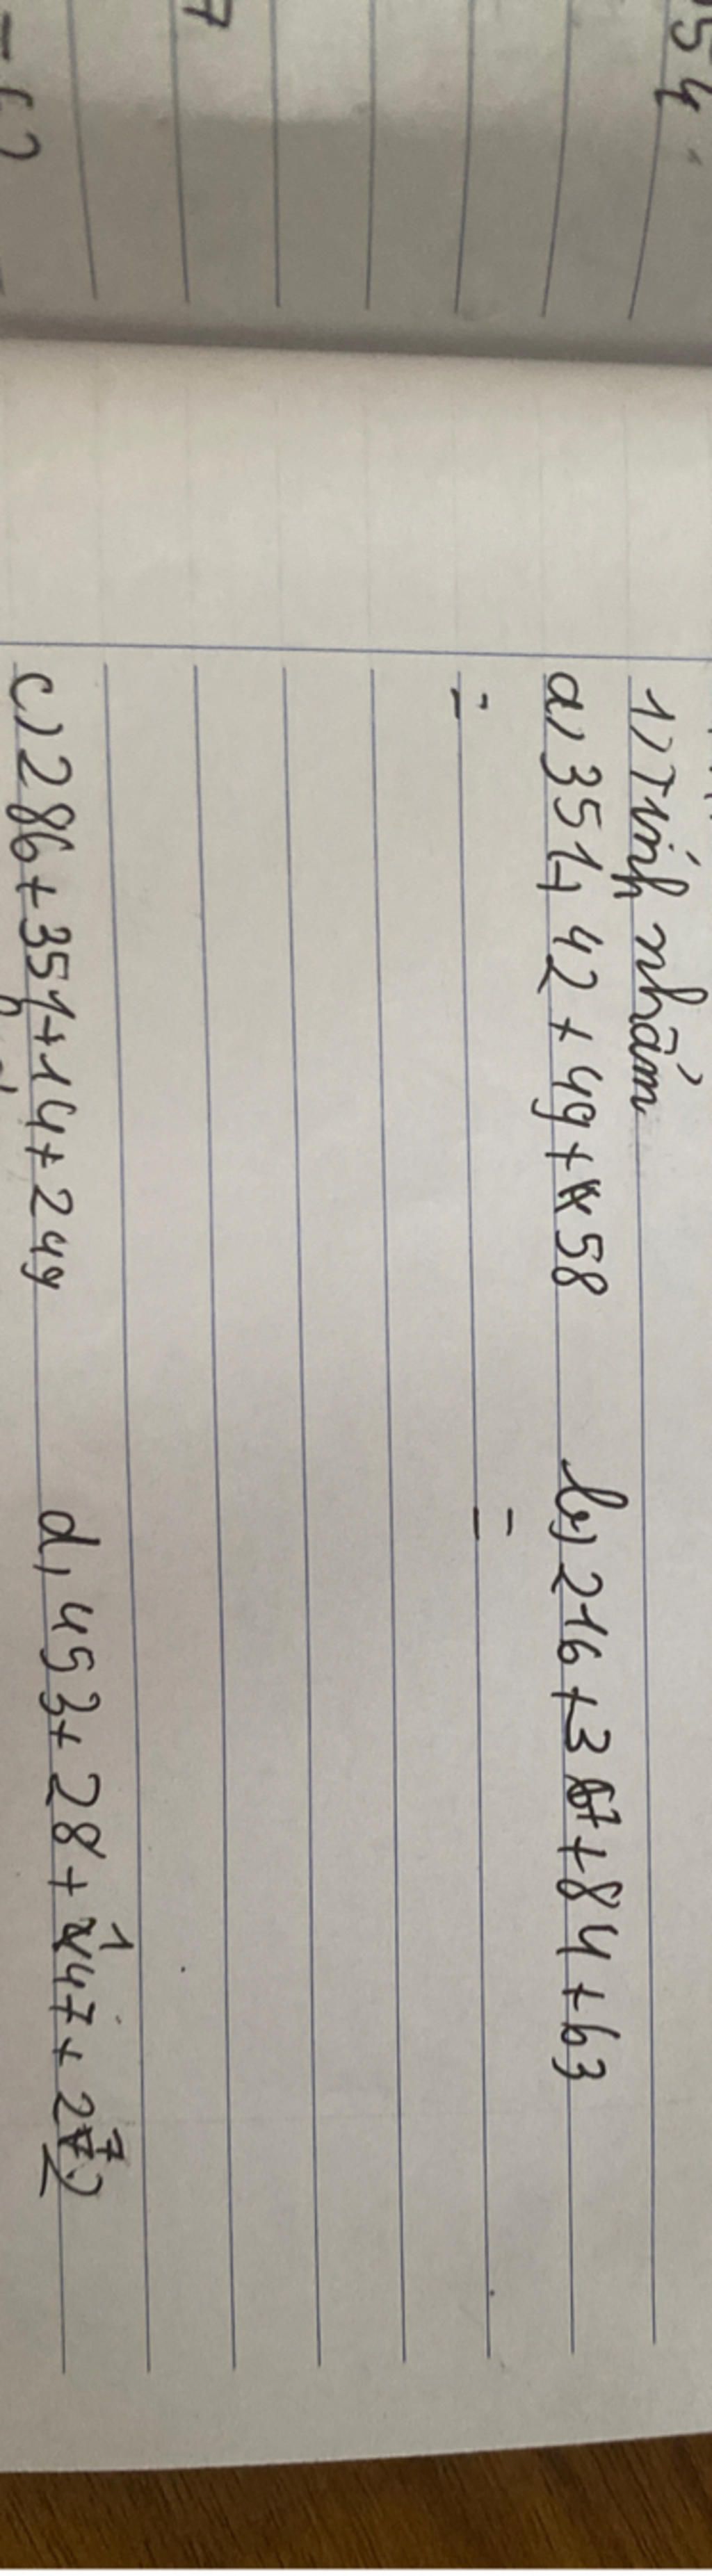 54
7
1) Tính nhẩm
a) 351 + 42 + 49 + 58 b) 216 + 367 + 84 + 63
= =
c) 286 + 351 + 14 + 249 d, 453 + 28 + 147 + 272